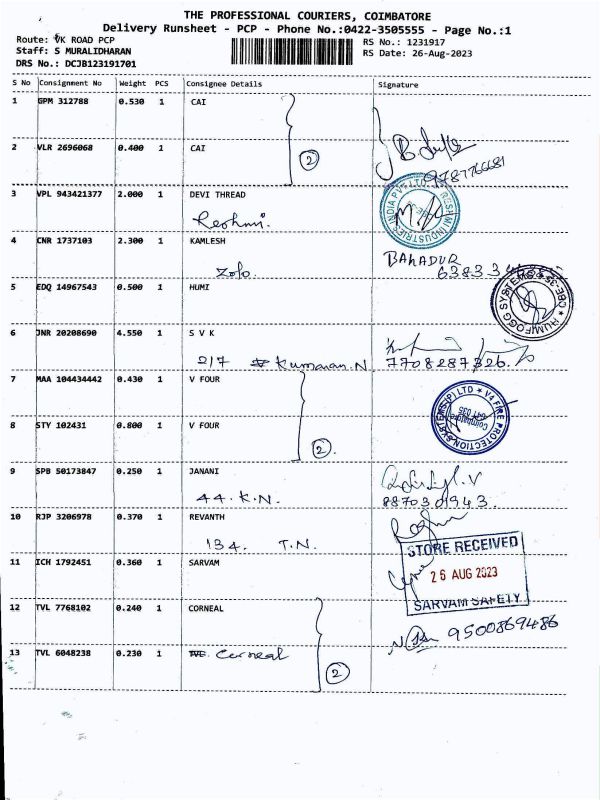 THE PROFESSIONAL COURIERS, COIMBATORE
Delivery Runsheet - PCP - Phone No.:0422-3505555 - Page No.:1
Route: VK ROAD PCP RS No.: 1231917
Staff: S MURALIDHARAN RS Date: 26-Aug-2023
DRS No.: DCJB123191701
S No Consignment No Weight PCS Consignee Details Signature
1 GPM 312788 0.530 1 CAI
2 VLR 2696068 0.400 1 CAI
2
9787766681
3 VPL 943421377 2.000 1 DEVI THREAD
Reshmi.
RESAMI INDUSTRIES INDIA PVT LTD
4 CNR 1737103 2.300 1 KAMLESH
Zolo.
BAHADUR
5 EDQ 14967543 0.500 1 HUMI
HUMFOGG SYSTEMS CBE-35
6 JNR 20208690 4.550 1 S V K
217 Kumaran.N
7708287326.
7 MAA 104434442 0.430 1 V FOUR
8 STY 102431 0.800 1 V FOUR
2
V4 FIRE PROTECTION SYSTEMS (P) LTD
Coimbatore
641 035
9 SPB 50173847 0.250 1 JANANI
44. K.N.
8870301943
10 RJP 3206978 0.370 1 REVANTH
134. T.N.
11 ICH 1792451 0.360 1 SARVAM
STORE RECEIVED
26 AUG 2023
SARVAM SAFETY
12 TVL 7768102 0.240 1 CORNEAL
9500869486
13 TVL 6048238 0.230 1 Corneal
2